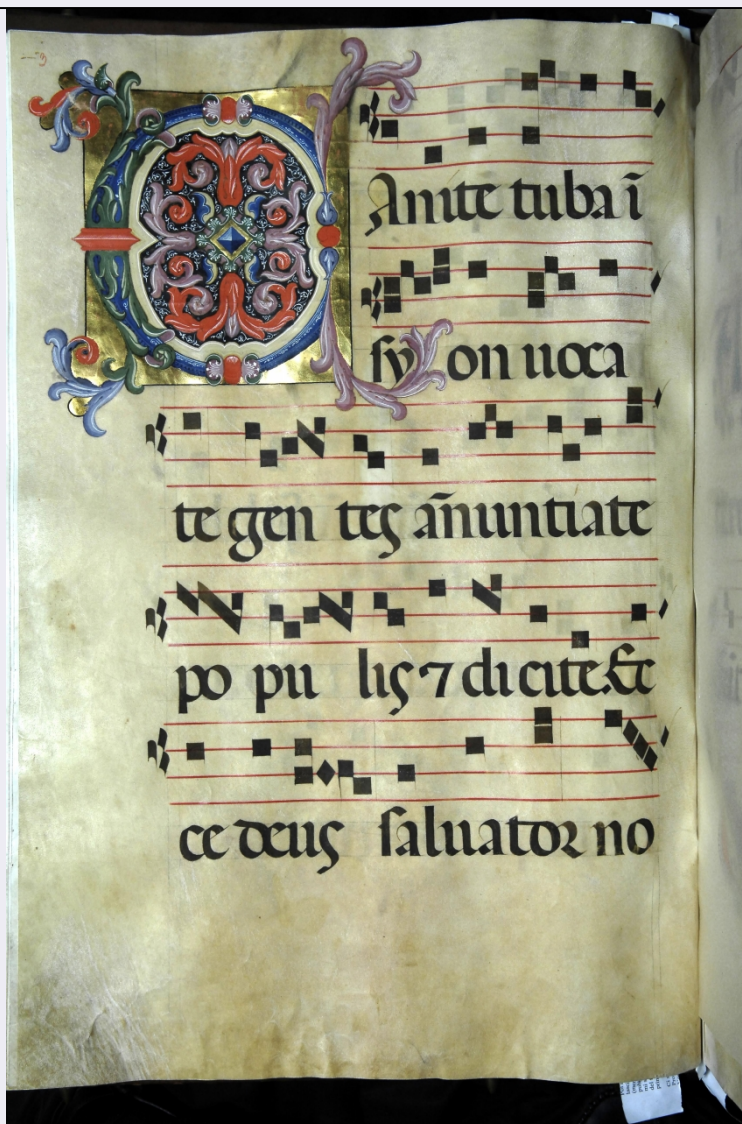 CAnite tuba ī
syon uoca
te gentes ānuntiate
populis ⁊ dicite. Ec
ce deus saluator no